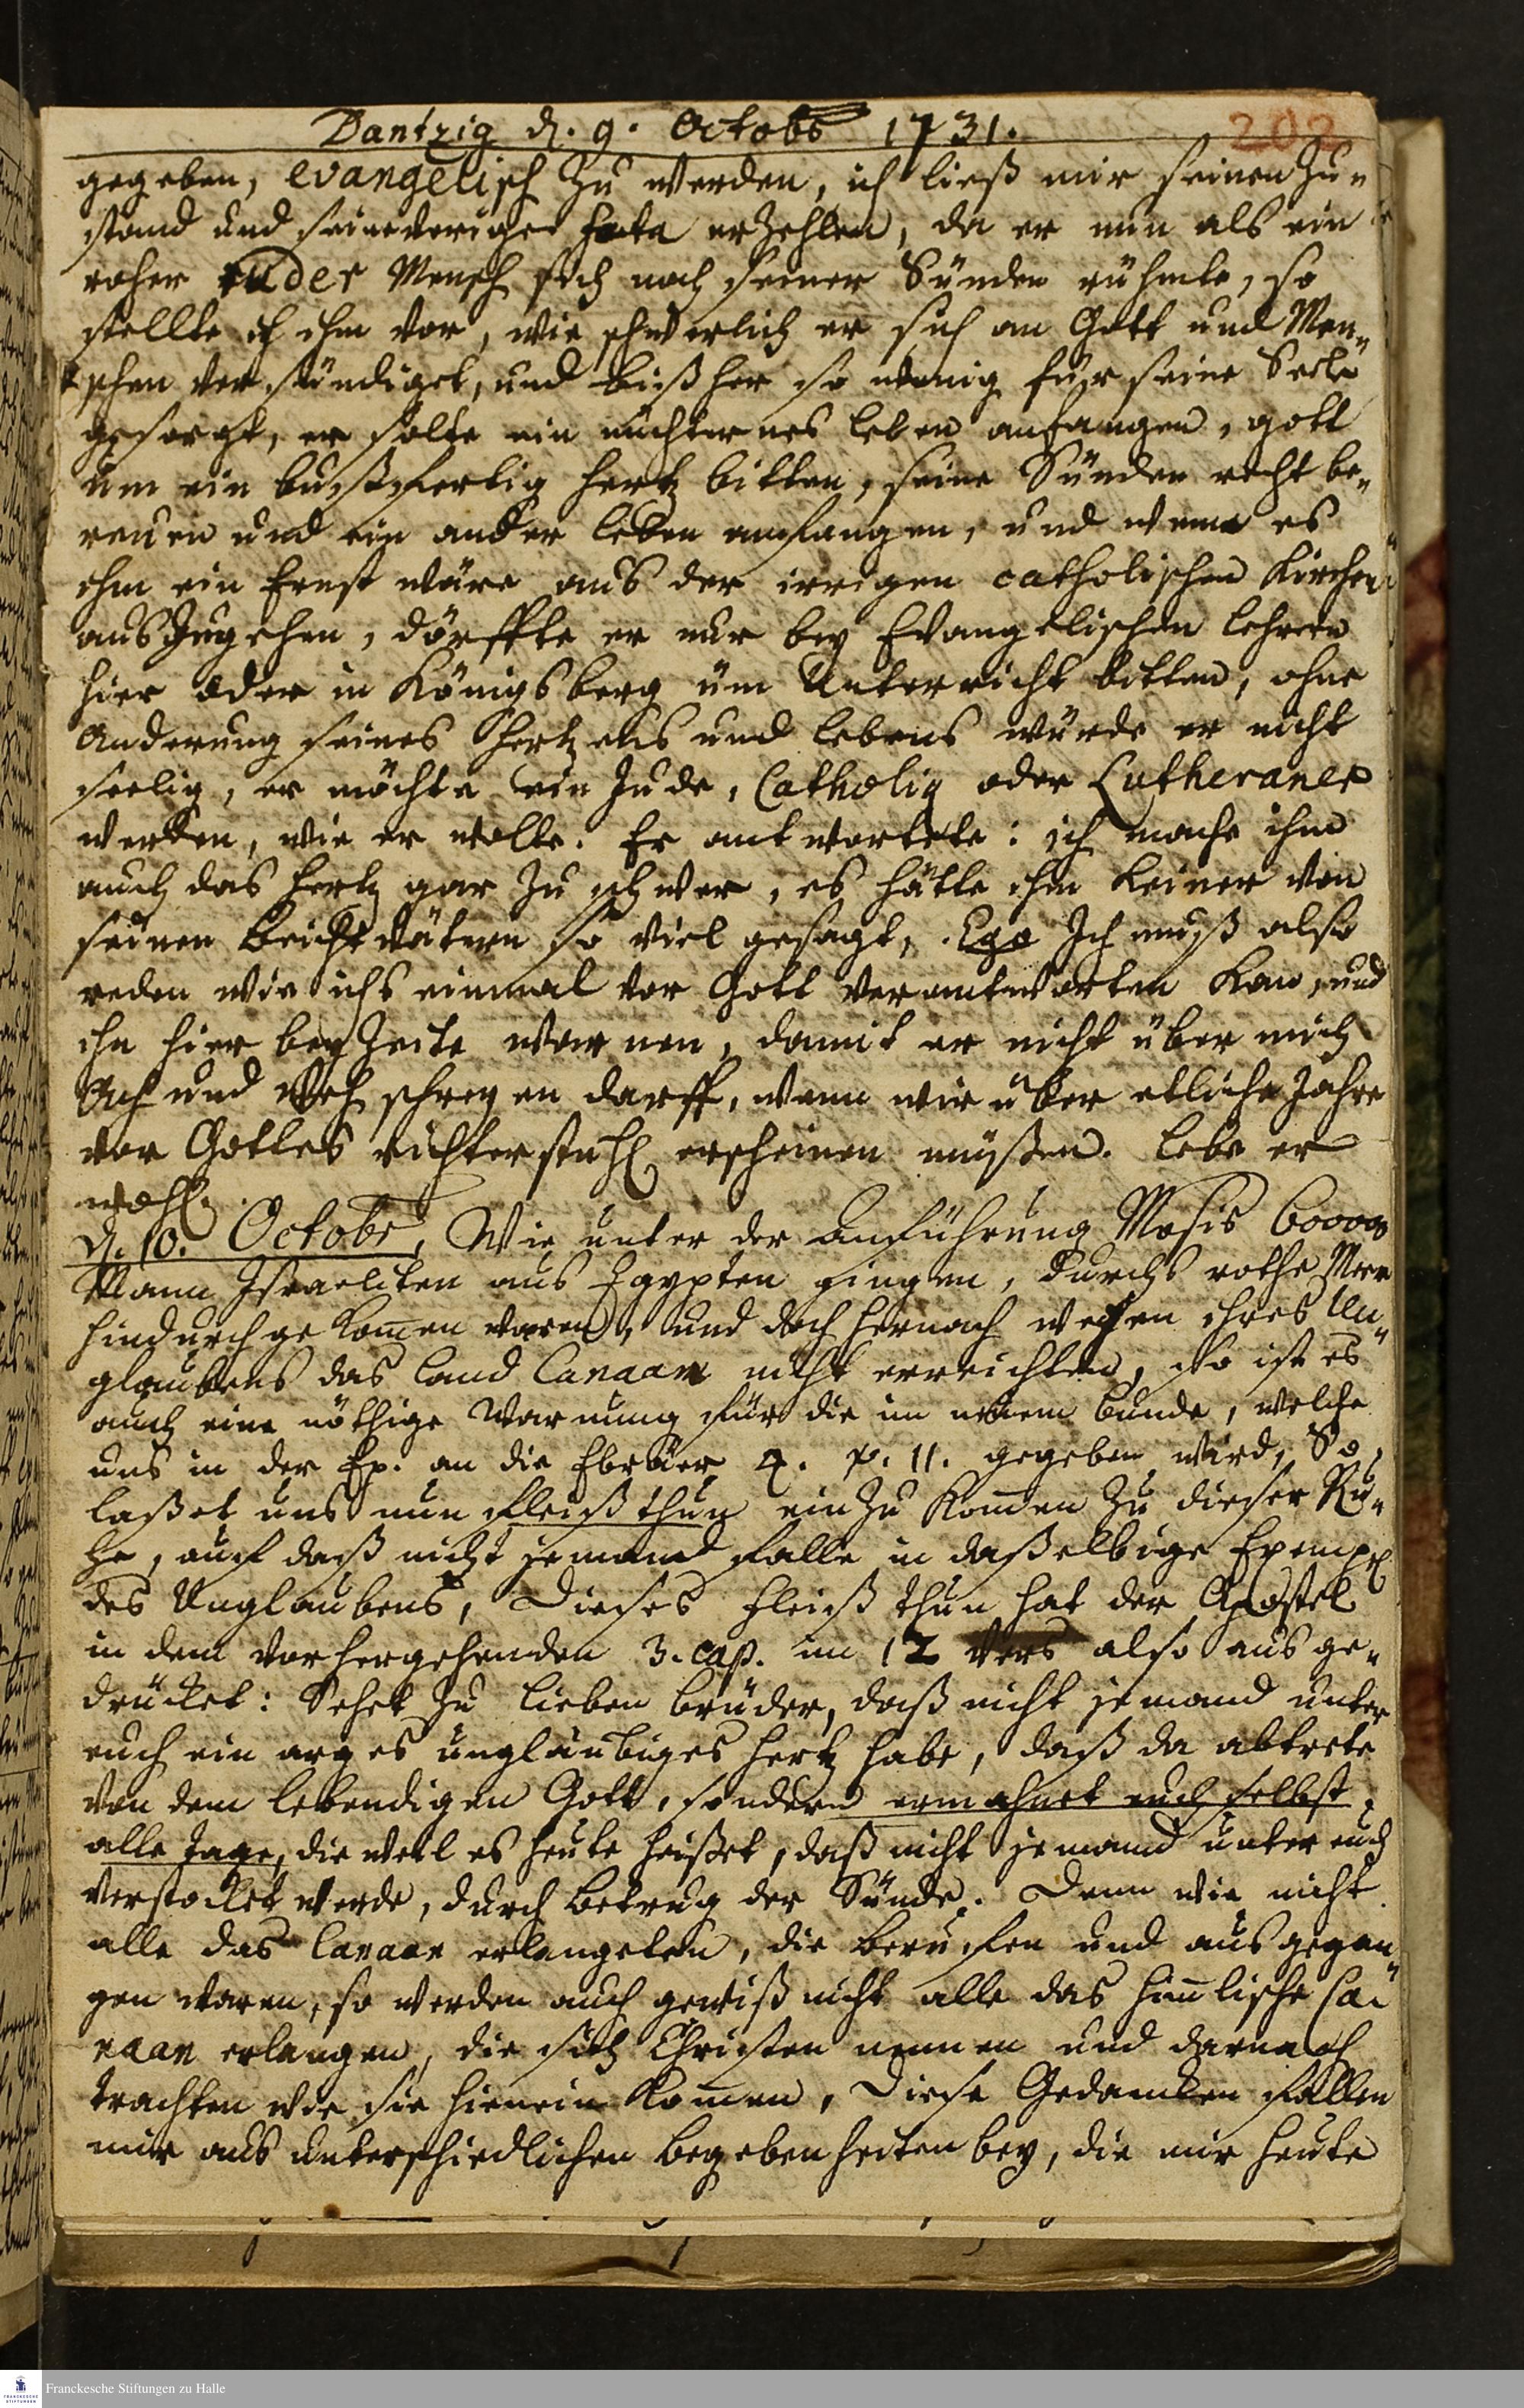 Dantzig d. 9. Octobr 1731.
202
gegeben, evangelisch zu werden, ich ließ mir seinen Zu-
stand und seine vorige fata erzehlen, da er nun als ein
roher ruder Mensch sich noch seiner Sünden rühmte, so
stellte ich ihm vor, wie schwerlich er sich an Gott und Men-
schen versündiget, und bißher so wenig für seine Seele
gesorgt, er solte ein nüchternes leben anfangen, gott
um ein bußfertig hertz bitten, seine Sünden recht be-
reuen und ein ander leben anfangen, und wenn es
ihm ein Ernst wäre aus der irrigen catholischen Kirchen
auszugehen, dörffte er nur bey Evangelischen Lehrern
hier oder in Königsberg üm Unterricht bitten, ohne
Anderung seines Hertzens und Lebens würde er nicht
seelig, er möchte ein Jude, Catholig oder Lutheraner
werden, wie er wolte. Er antwortete: ich mache ihm
auch das hertz gar zu schwer, es hätte ihm keiner von
seinen Beichtvätern so viel gesagt, Ego Ich muß also
reden wie ichs einmal vor Gott verantworten kan, und
ihn hier bey Zeite warnen, damit er nicht über mich
Ach und Weh schreyen darff, wenn wir über etliche Jahre
vor Gottes richterstuhl erscheinen müßen. Lebe er
wohl.
d. 10. Octobr, Wie unter der Anführung Mosis 600000
Mann Israeliten aus Egypten gingen, durchs rothe Meer
hindurch gekomen waren, und doch hernach wegen ihres Un-
glaubens das Land Canaan nicht erreichten, so ist es
auch eine nöthige Warnung für die im neuem bunde, welche
uns in der Ep. an die Ebräer 4. v. 11. gegeben wird, So
laßet uns nun fleiß thun ein zu komen zu dieser Ru-
he, auf daß nicht jemand falle in daßelbige Exempel
des Unglaubens, Dieses fleiß thun hat der Apostel
in dem vorhergehenden 3. cap. im 12 vers also ausge-
drücket: Sehet zu lieben brüder, daß nicht jemand unter
euch ein arges ungläubiges hertz habe, daß da abtrete
von dem lebendigen Gott, sondern ermahnet euch selbst
alle Tage, die weil es heute heißet, daß nicht jemand unter euch
verstocket werde, durch betrug der Sünde. Denn wie nicht
alle das Canaan erlangeten, die beruffen und ausgegan-
gen waren, so werden auch gewiß nicht alle das himlische Ca-
naan erlangen, die sich Christen nennen und darnach
trachten wie sie hienein komen, Diese Gedancken fallen
mir aus unterschiedlichen begebenheiten bey, die mir heute
Franckesche Stiftungen zu Halle